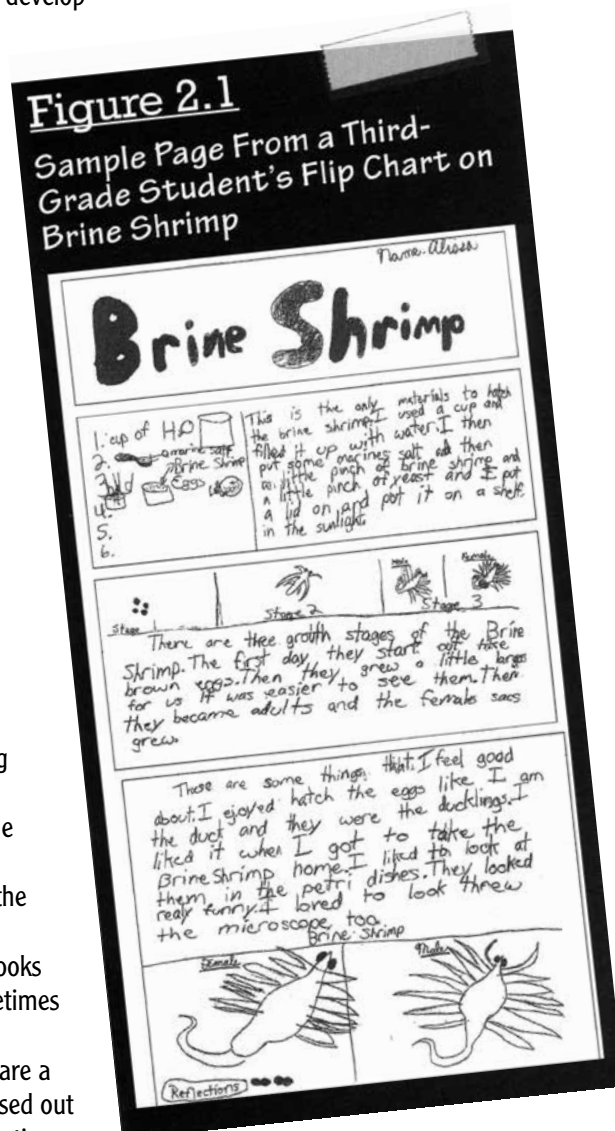 develop
Figure 2.1
Sample Page From a Third-
Grade Student's Flip Chart on
Brine Shrimp
Name: Alissa
Brine Shrimp
1. cup of H2O
2. marine salt
3. Brine Shrimp
Eggs
4.
5.
6.
This is the only materials to hatch
the brine shrimp. I used a cup and
filled it up with water. I then
put some marines salt and then
a little pinch of brine shrimp and
a little pinch of yeast and I put
a lid on and pot it on a shelf
in the sunlight.
Stage 1
Stage 2
Male
Female
Stage 3
There are thee groth stages of the Brine
Shrimp. The first day they start out like
brown eggs. Then they grew a little
for us it was easier to see them. Then
they became adults and the female sacs
grew.
These are some things that I feel good
about. I ejoyed hatch the eggs like I am
the duck and they were the ducklings. I
liked it when I got to take the
Brine Shrimp home. I liked to look at
them in the petri dishes. They looked
realy funny. I loved to look threw
the microscope too.
Brine Shrimp
Female
Male
Reflections
g
e
the
ooks
etimes
are a
sed out